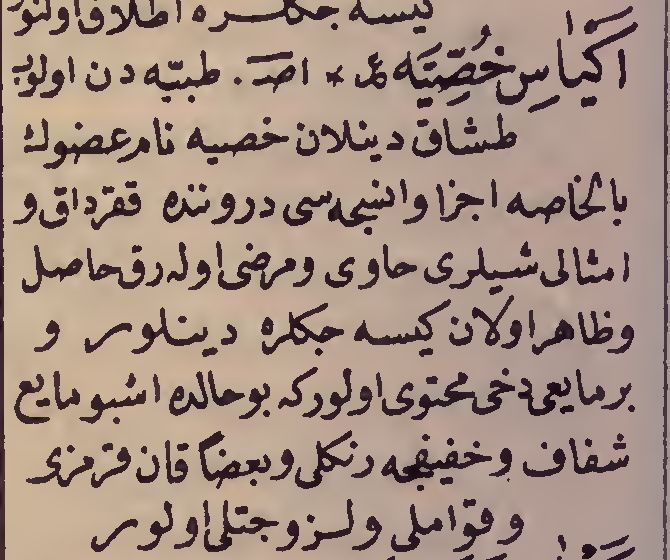 كيسه جكلره اطلاق اولنور
اَكياسِ خُصِّيَه ع * اصـ . طبيّه دن اولوب
طشاق دينلان خصيه نام عضوك
بالخاصه اجزا وانسجه سى دروننده ققرداق و
امثالى شيلرى حاوى ومرضى اوله رق حاصل
وظاهر اولان كيسه جكلره دينلور و
بر مايعى دخى محتوى اولوركه بو حالده اشبو مايع
شفاف وخفيفجه رنكلى وبعضاً قان قرمزى
وقواملى ولزوجتلى اولور